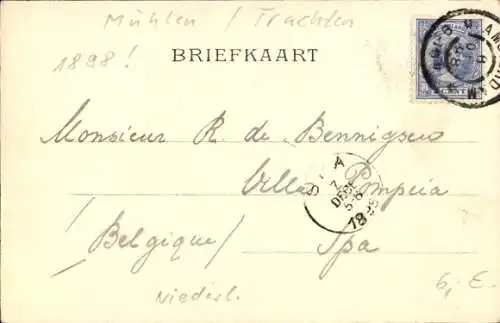 Mühlen / Trachten
1898!
BRIEFKAART
CENT
Monsieur R. de Bennigsen
Villa Pompeïa
SPA
7
DECE
5-6
1898
Belgique / Spa
Niederl.
6,- E.